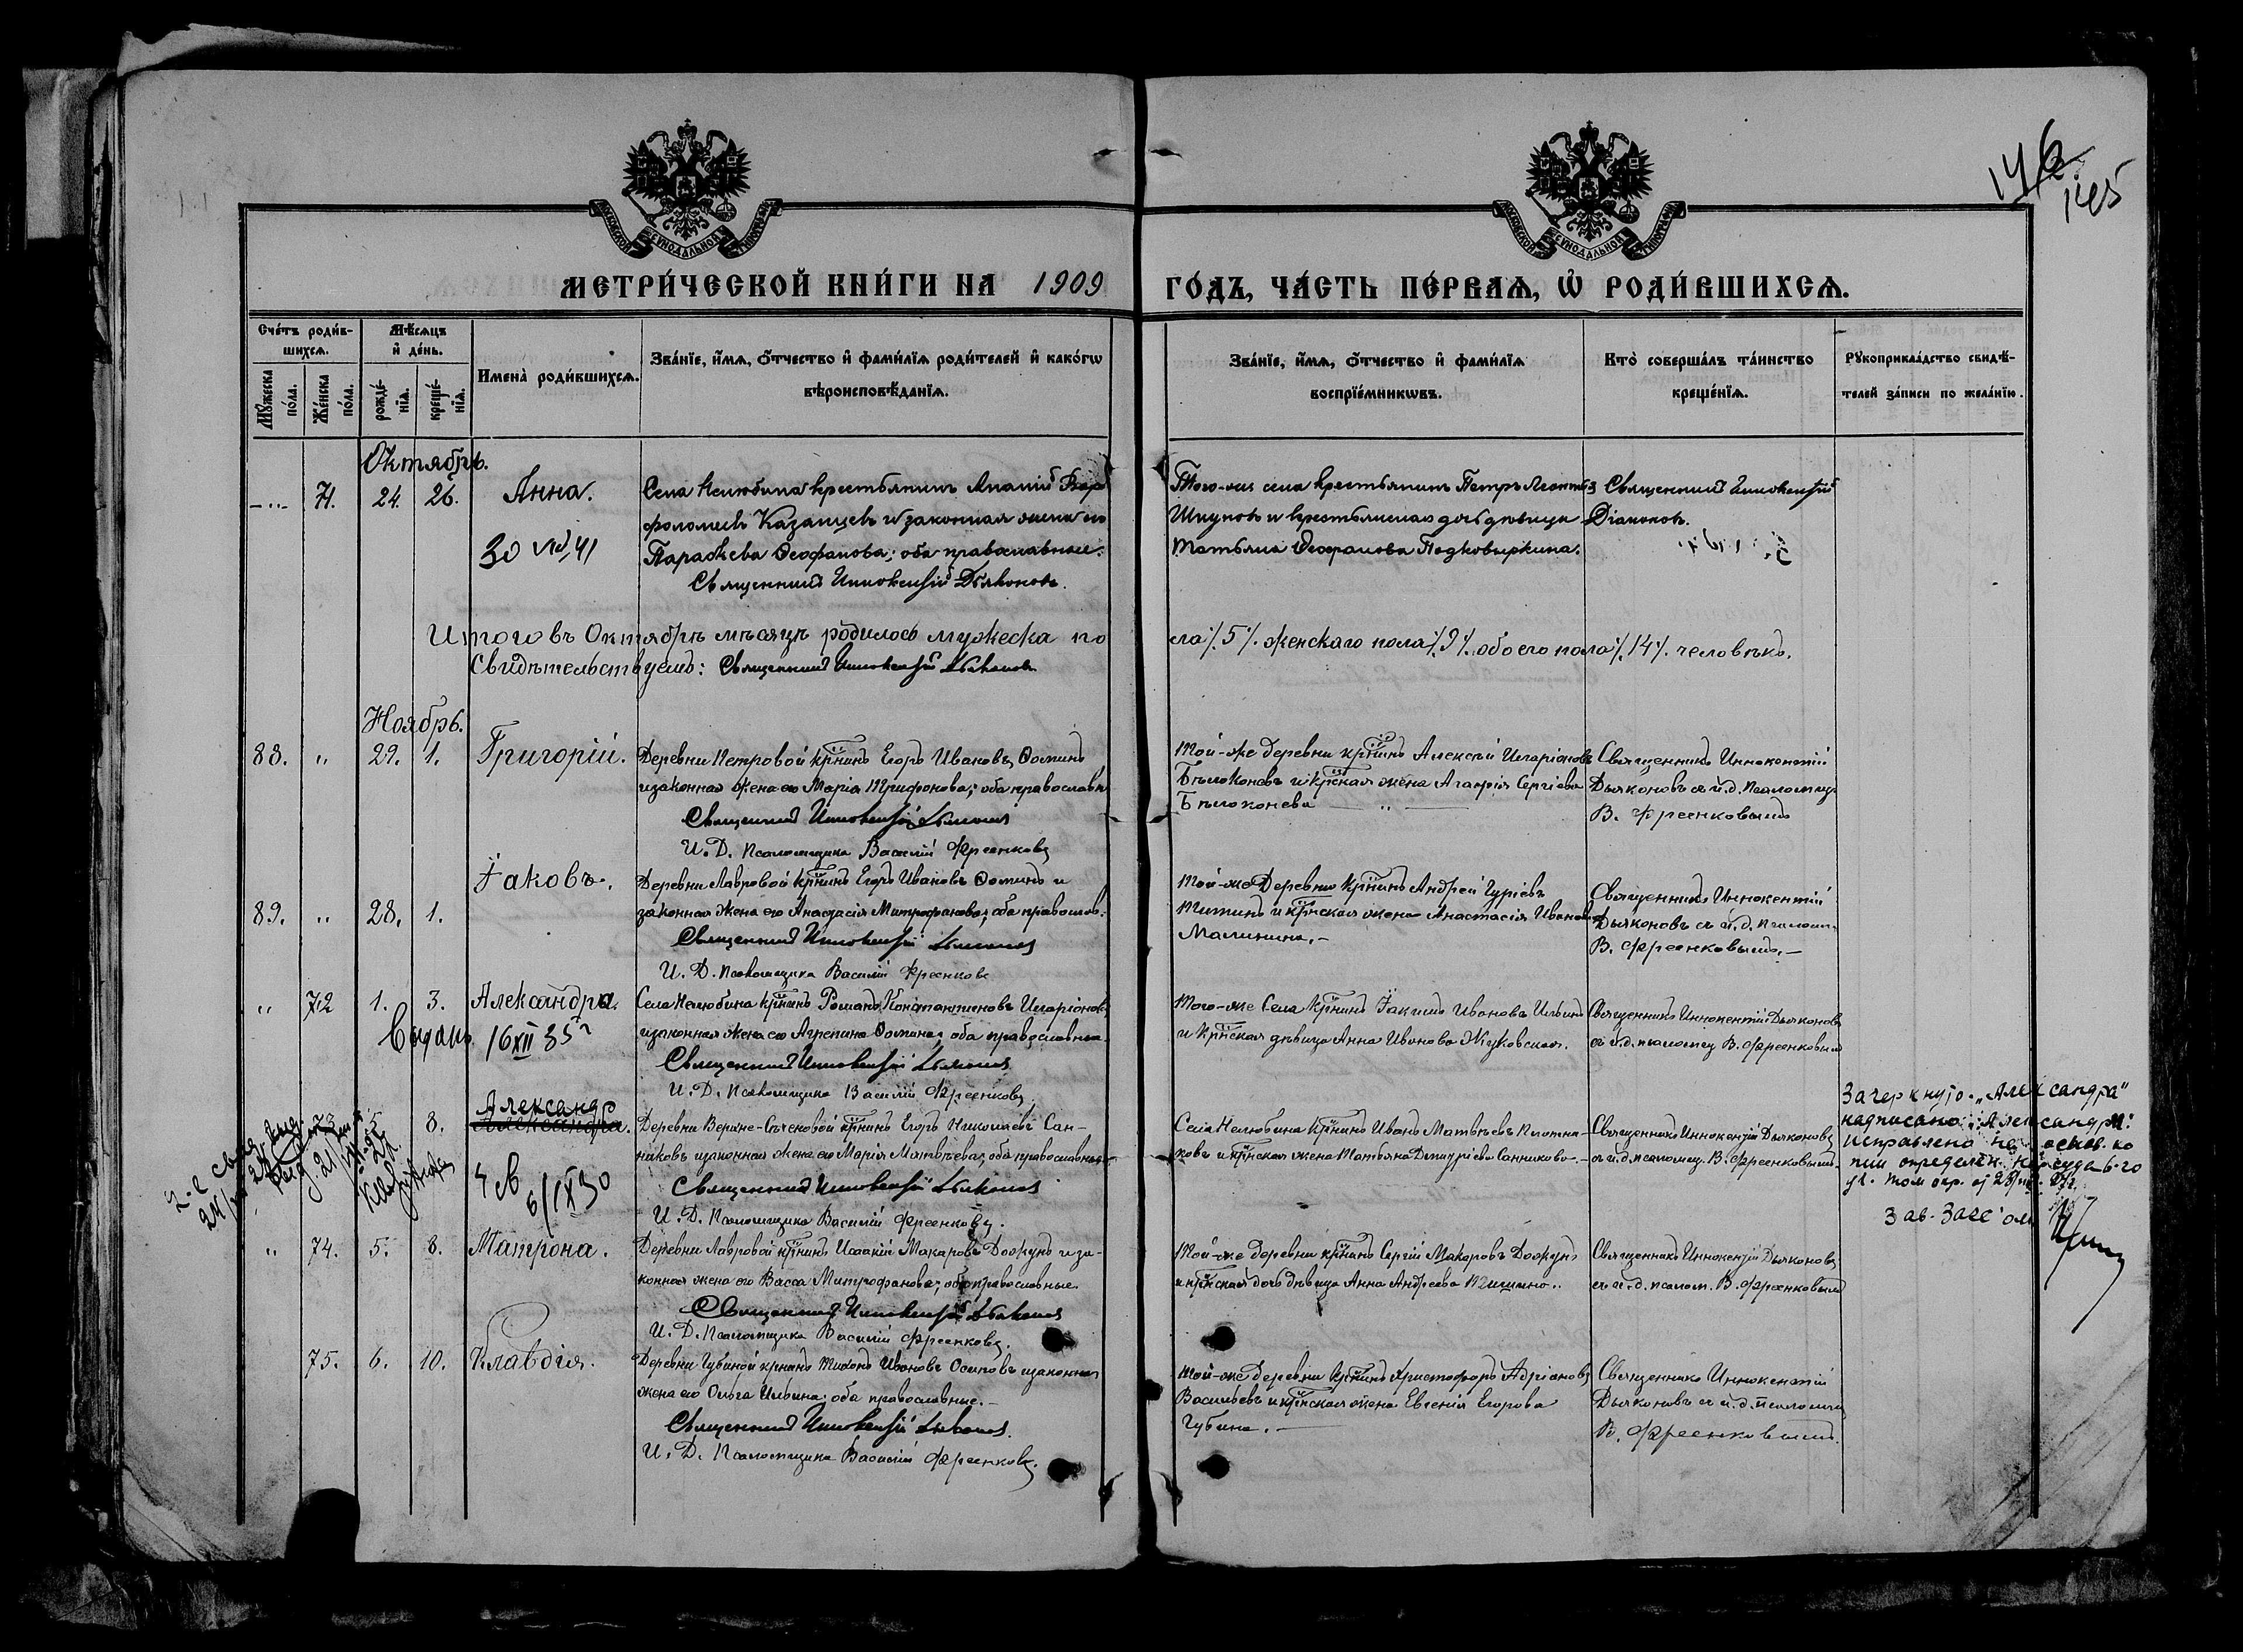 146
145
МОСКОВСКОЙ СУНОДАЛЬНОЙ ТИПОГРАФІИ
МОСКОВСКОЙ СУНОДАЛЬНОЙ ТИПОГРАФІИ
МЕТРИ́ЧЕСКОЙ КНИ́ГИ НА 1909 ГО́ДЪ, ЧА́СТЬ ПЕ́РВАѦ, Ѡ҆ РОДИ́ВШИХСѦ.
Сче́тъ роди́в-
шихсѧ.
Мѣ́сѧцъ
и҆ де́нь.
Мꙋ́жеска
по́ла.
Же́нска
по́ла.
рожде́-
нїѧ.
креще́-
нїѧ.
Имена̀ роди́вшихсѧ.
Зва́нїе, и҆́мѧ, ѻ҆́тчество и҆ фами́лїѧ роди́телей и҆ како́гѡ
вѣроисповѣ́данїѧ.
Зва́нїе, и҆́мѧ, ѻ҆́тчество и҆ фами́лїѧ
воспрїе́мникѡвъ.
Кто̀ соверша́лъ та́инство
креще́нїѧ.
Рꙋкоприкла́дство свидѣ́-
телей за́писи по жела́нїю.
Октябрь.
-"- 71. 24. 26. Анна.
Села Нелюбина крестьянинъ Ананій Вар
фоломеевъ Казанцевъ и законная жена его
Параскева Ѳеофанова; оба православные.
Священникъ Иннокентій Дьяконовъ.
30 VII 41
Того-же села крестьянинъ Петръ Леонтьев
Шкуновъ и крестьянская дочь дѣвица
Татьяна Ѳеофанова Подковыркина.
Священникъ Иннокентій
Діаконовъ.
Итого въ Октябрѣ мѣсяцѣ родилось мужеска по
ла ⁒ 5 ⁒ женскаго пола ⁒ 9 ⁒ обоего пола ⁒ 14 ⁒ человѣкъ.
Свидѣтельствуемъ: Священникъ Иннокентій Дьяконовъ
Ноябрь.
88. " 29. 1. Григорій.
Деревни Петровой кр̃нинъ Егоръ Ивановъ Ѳоминъ
и законная жена его Марія Трифонова; оба православн
Священникъ Иннокентій Дьяконовъ
И. Д. Псаломщика Василій Фреенковъ
Той-же деревни кр̃нинъ Алексѣй Иларіоновъ
Бѣлоконевъ и кр̃нская жена Агафія Сергіева
Бѣлоконева — " —
Священникъ Иннокентій
Дьяконовъ съ и.д. псаломщ
В. Фреенковымъ
89. " 28. 1. Іаковъ.
Деревни Лавровой кр̃нинъ Егоръ Ивановъ Ѳоминъ и
законная жена его Анастасія Митрофанова; оба православ.
Священникъ Иннокентій Дьяконовъ
И. Д. Псаломщика Василій Фреенковъ
Той-же Деревни Кр̃нинъ Андрей Гуріевъ
Титинъ и кр̃нская жена Анастасія Иванова
Малинина.-
Священникъ Иннокентій
Дьяконовъ съ и.д. псаломщ.
В. Фреенковымъ.-
" 72 1. 3. Александра.
Выдано 16 XII 35 г
Села Нелюбина кр̃нинъ Романъ Константиновъ Иларіоновъ
и законная жена его Агрепина Ѳомина; оба православные
Священникъ Иннокентій Дьяконовъ
И. Д. Псаломщика Василій Фреенковъ
Того-же Села кр̃нинъ Іакимъ Ивановъ Ильинъ
и Кр̃нская дѣвица Анна Иванова Жуковская.
Священникъ Иннокентій Дьяконовъ
съ и.д. псаломщ В. Фреенковымъ
73 5 8. Александр
Александра.
4 св
6/IX 30
Деревни Верхне-Сѣченовой кр̃нинъ Егоръ Николаевъ Сан-
никовъ и законная жена его Марія Матвѣева; оба православные
Священникъ Иннокентій Дьяконовъ
И. Д. Псаломщика Василій Фреенковъ.
Села Нелюбина Кр̃нинъ Иванъ Матвѣевъ Плотни-
ковъ и кр̃нская жена Татьяна Димитріева Санникова.-
Священникъ Иннокентій Дьяконовъ
съ и.д. псаломщ. В. Фреенковымъ.
Зачеркнуто: "Александра"
надписано: "Александр"
исправлено на основ. ко
пии определен. нарсуда 6-го
уч. Том окр. от 28/
Зав. Загс'ом
" 74. 5. 8. Матрона.
Деревни Лавровой кр̃нинъ Исаакій Макаровъ Дожунъ и за-
конная жена его Васса Митрофанова; оба православные.
Священникъ Иннокентій Дьяконовъ
И. Д. Псаломщика Василій Фреенковъ.
Той-же деревни кр̃нинъ Сергій Макаровъ Дожунъ
и кр̃нская дочь дѣвица Анна Андреева Тишина..
Священникъ Иннокентій Дьяконовъ
съ и.д. псалом. В. Фреенковымъ
75. 6. 10. Клавдія.
Деревни Губиной кр̃нинъ Тихонъ Ивановъ Осиповъ и законная
жена его Ольга Ильина; оба православные.-
Священникъ Иннокентій Дьяконовъ.
И. Д. Псаломщика Василій Фреенковъ.
Той-же деревни кр̃нинъ Христофоръ Адріановъ
Васильевъ и кр̃нская жена Евгенія Егорова
Губина.-
Священникъ Иннокентій
Дьяконовъ съ и.д. псаломщ
В. Фреенковымъ.